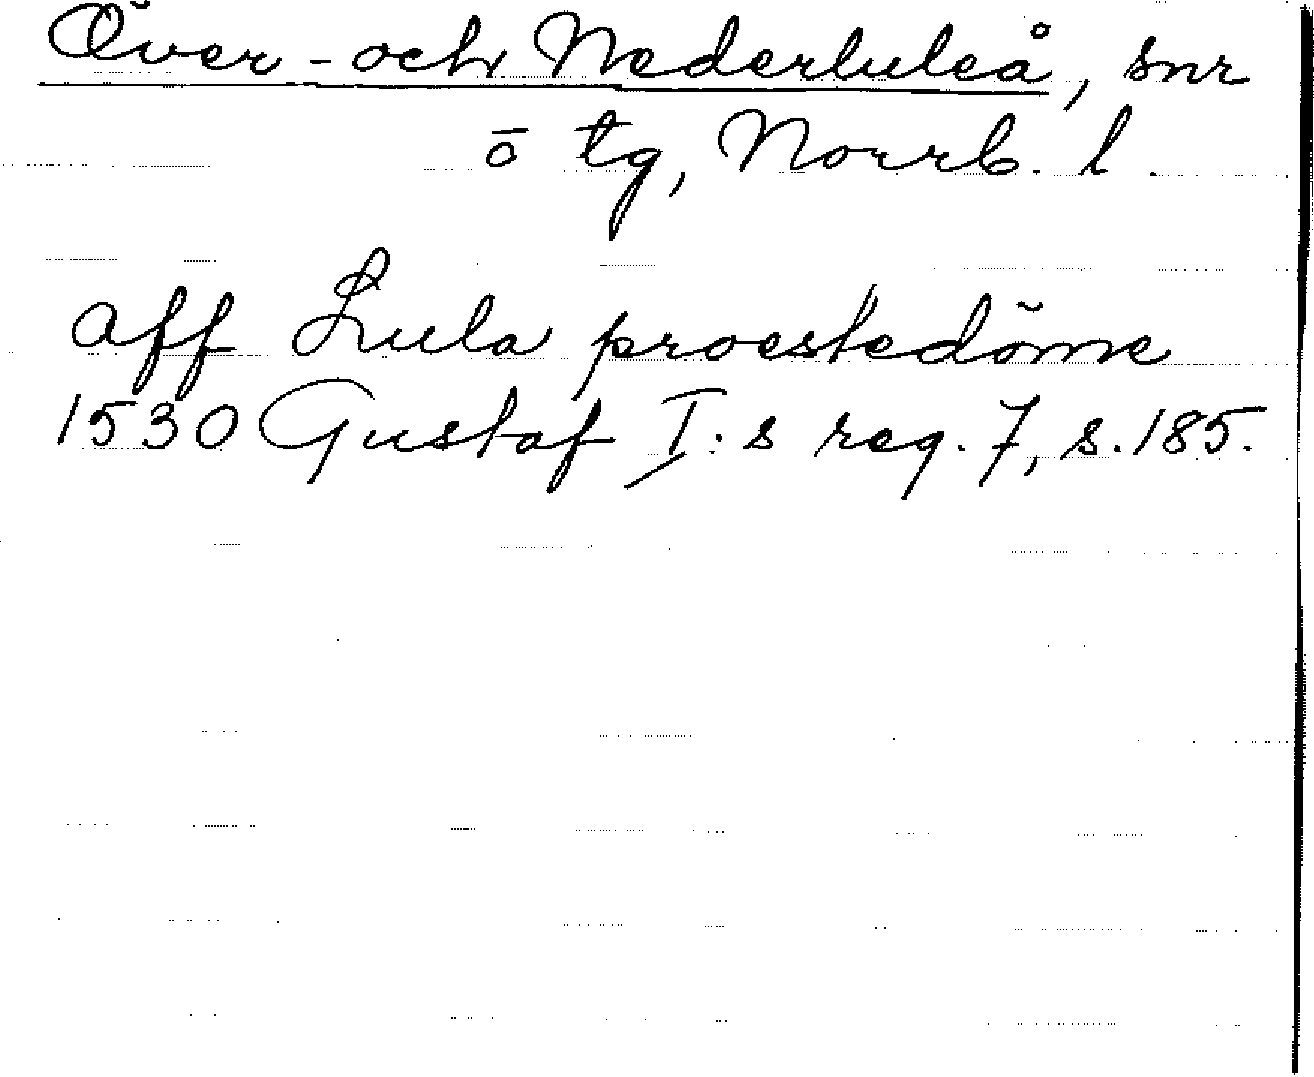 Över- och Nederluleå, snr
ö tg, Norrb. l.
aff Lula proestedöme
1530 Gustaf I:s reg. 7, s. 185.